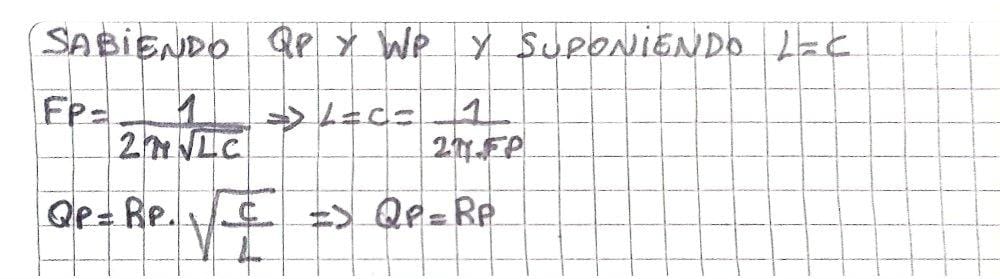 SABIENDO QP Y WP Y SUPONIENDO L=C
FP= 1/(2π√LC) => L=C= 1/(2π.FP)
QP=RP.√(C/L) => QP=RP